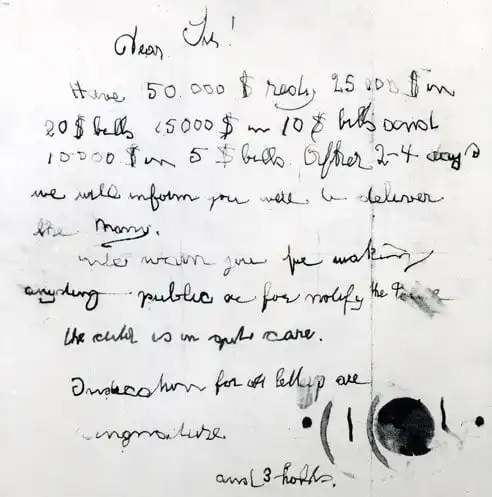 Dear Sir!
Have 50.000 $ redy 25 000 $ in
20 $ bills 15000 $ in 10 $ bills and
10000 $ in 5 $ bills. After 2-4 days
we will inform you were to deliver
the Mony.
We warn you for making
anyding public or for notify the
the child is in gut care.
Indication for all are
singnature
and 3 holds.